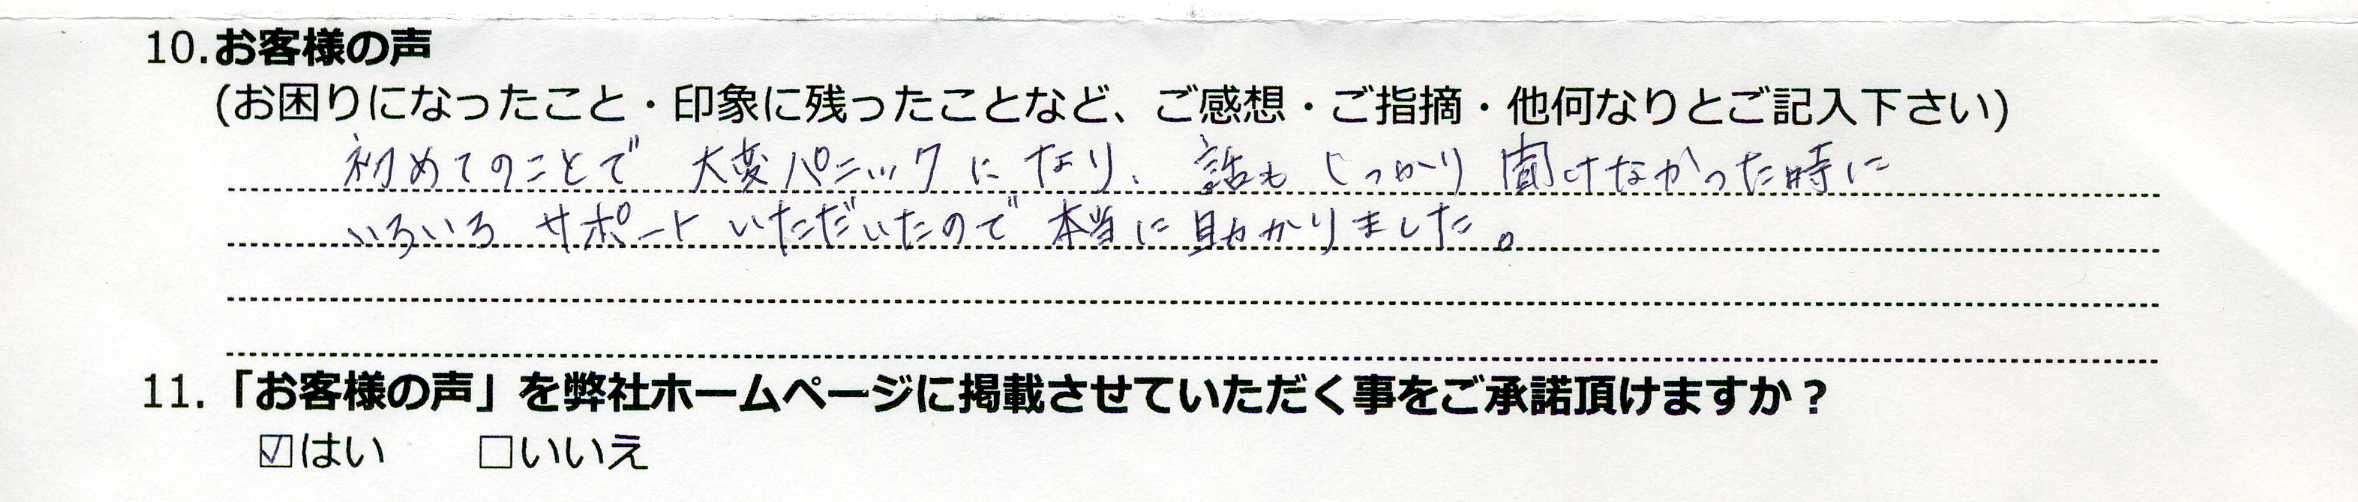 10.お客様の声
(お困りになったこと・印象に残ったことなど、ご感想・ご指摘・他何なりとご記入下さい)
初めてのことで 大変パニックになり、話もしっかり聞けなかった時に
いろいろ サポートいただいたので 本当に助かりました。
11.「お客様の声」を弊社ホームページに掲載させていただく事をご承諾頂けますか？
☑はい　□いいえ